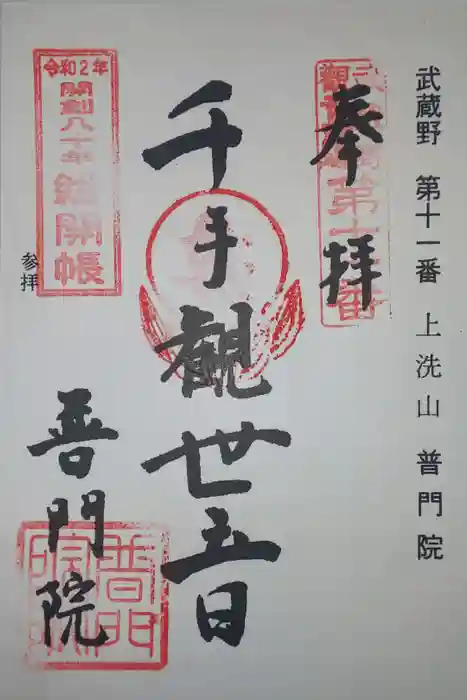 武蔵野 第十一番 上洗山 普門院
奉拝
千手観世五日
普門院
参拝
令和2年
開創八十年
総開帳
普門院